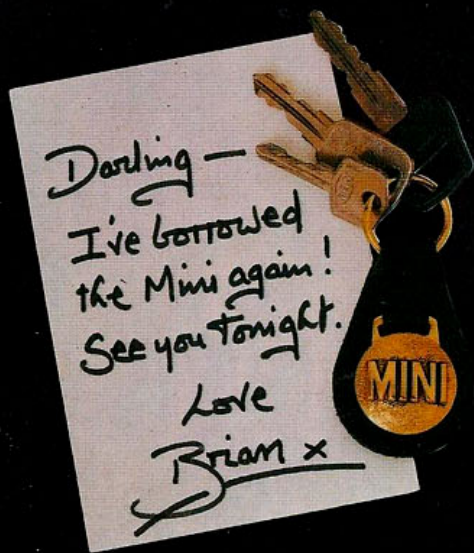 Darling —
I've borrowed
the Mini again!
See you Tonight.
Love
Brian x
MINI